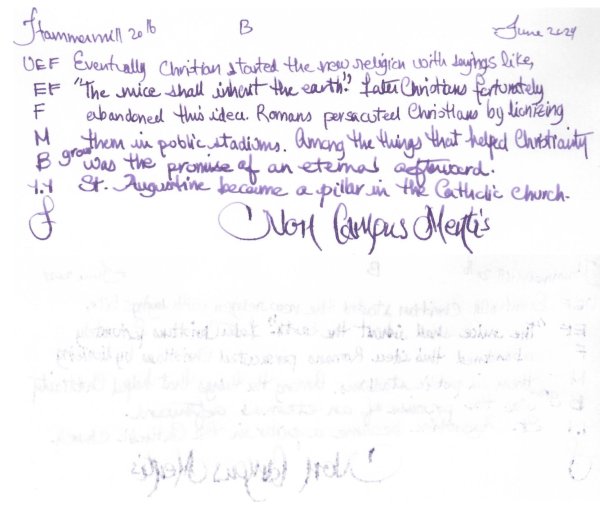 Hammermill 20 lb B June 2024
UEF Eventually Christian started the new religion with sayings like,
EF "The mice shall inherit the earth". Later Christians fortunately
F abandoned this idea. Romans persacuted Christians by lionizing
M them in public stadiums. Among the things that helped Christiainty
B grow was the promise of an eternal aefterward.
1.1 St. Augustine became a pillar in the Catholic Church.
J Non Campus Mentis